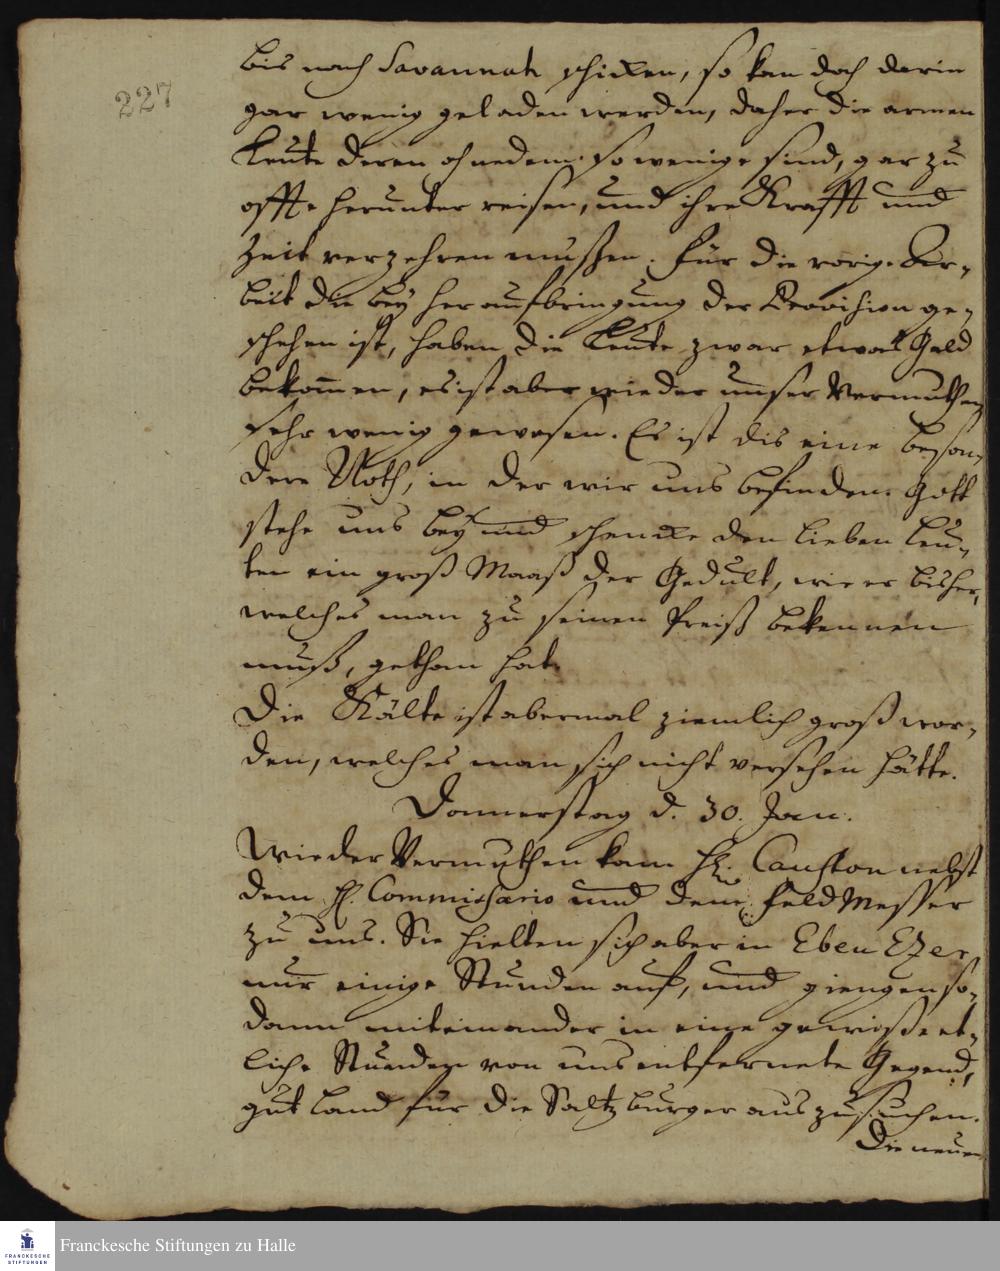 227
bis nach Savannah schicken, so kan doch darin
gar wenig geladen werden, daher die armen
Leute deren ohnedem so wenige sind, gar zu
offte herunter reisen, und ihre Krafft und
Zeit verzehren mußen. Für die vorige Ar-
beit die bey heraufbringung der Provision ge-
schehen ist, haben die Leute zwar etwas Geld
bekom̅en, es ist aber wieder unser Vermuthen
sehr wenig gewesen. Es ist dis eine beson-
dere Noth, in der wir uns befinden. Gott
stehe uns bey und schencke den lieben Leu-
ten ein groß Maaß der Gedult, wie er bisher,
welches man zu seinen Preiß bekennen
muß, gethan hat.
Die Kälte ist abermal ziemlich groß wor-
den, welches man sich nicht versehen hätte.
Donnerstag d. 30. Jan.
Wieder Vermuthen kam H. Causton nebst
dem H. Commissario und dem FeldMesser
zu uns. Sie hielten sich aber in Eben Ezer
nur einige Stunden auf, und giengen so-
dann miteinander in eine gewiße et-
liche Stunden von uns entfernete Gegend,
gut Land für die Saltzburger auszusuchen.
Die neuen
Franckesche Stiftungen zu Halle
FRANCKESCHE
STIFTUNGEN